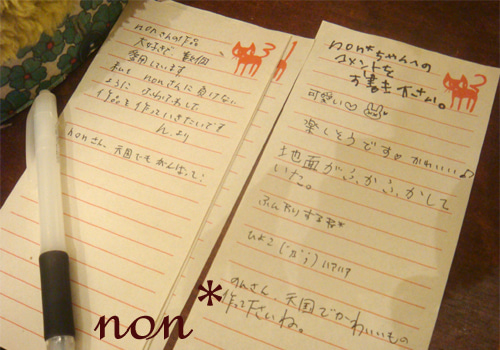 nonさんの作品
大好きで 数個
愛用しています
私も nonさんに負けない
ように
作品を作っていきたいです
ん.より
nonさん、天国でもがんばって!
non*ちゃんへの
コメントを
お書き下さい。
可愛い♡
楽しそうです。かわいい♪
地面がふかふかして
いた。
ふんわりするね
ひよこ ハァハァ
のんさん、天国でかわいいもの
作って下さいね。
non*